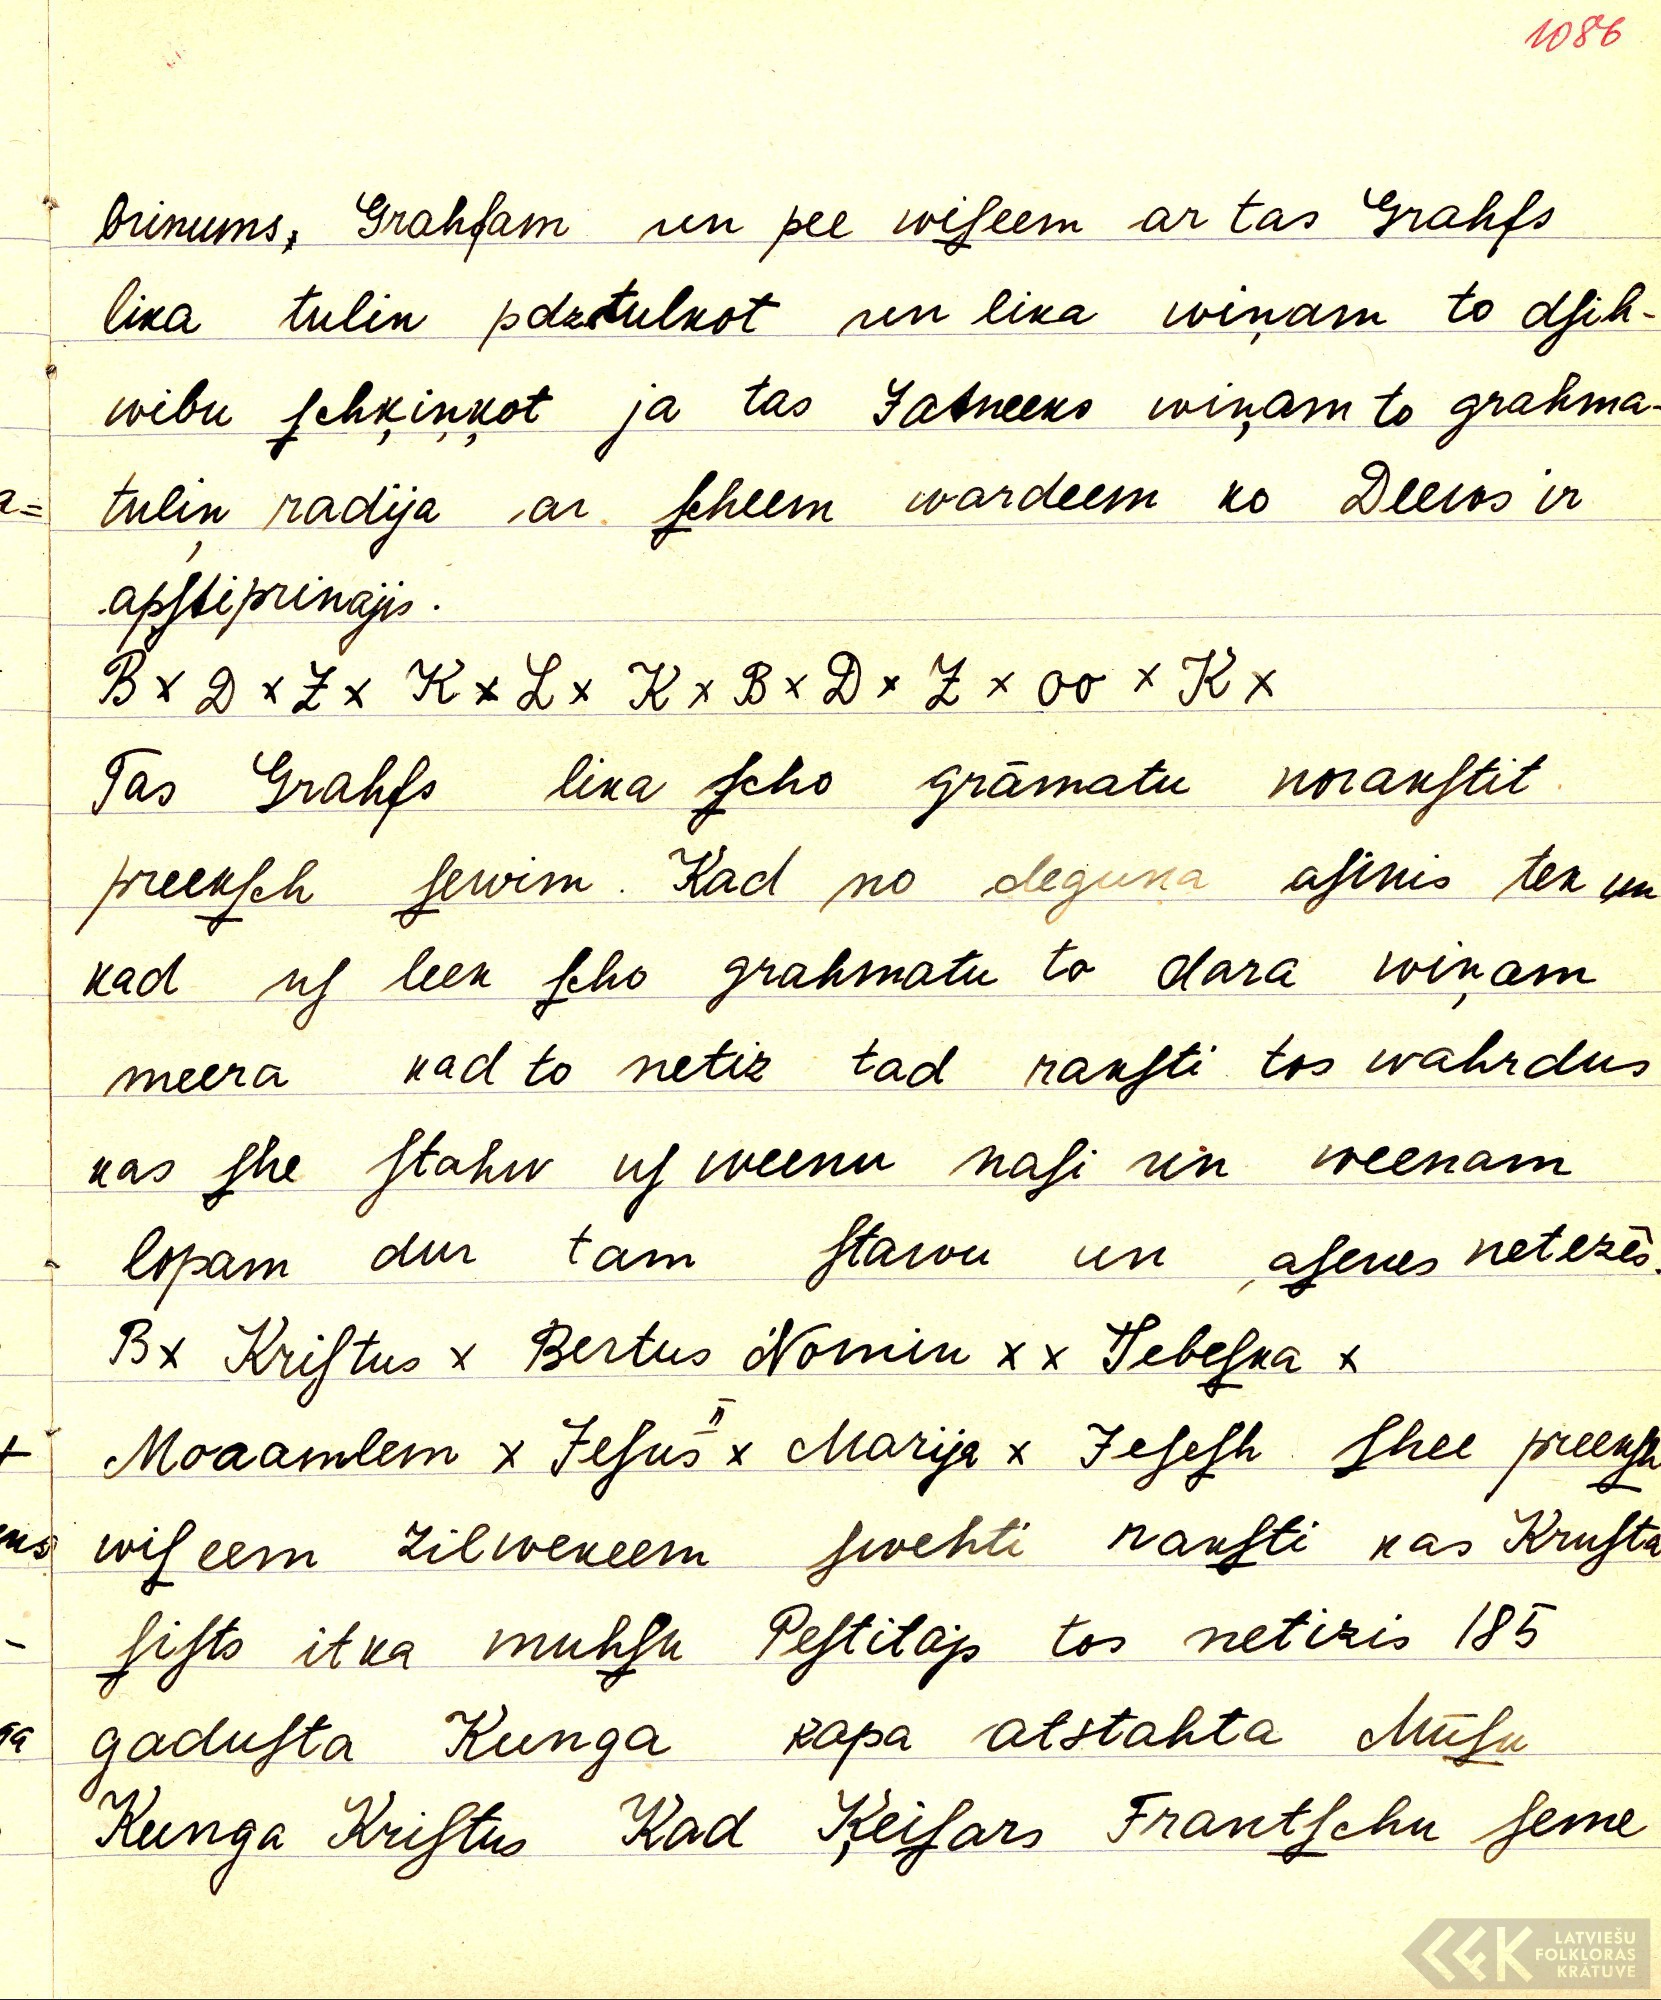 1086
brinums, Grahfam un pee wiſeem ar tas Grahfs
lika tulin pdzstulkot un lika wiņam to dſih-
wibu ſchķiņķot ja tas Jatneeks wiņam to grahma-
a= tuliņ radija ar ſcheem wardeem ko Deews ir
apſtiprinajis.
B x D x Z x K x L x K x B x D x Z x oo x K x
Tas Grahfs lika ſcho grāmatu norakſtit
preekſch ſewim. Kad no deguna aſinis tek un
kad uſ leek ſcho grahmatu to dara wiņam
meera kad to netiz tad rakſti tos wahrdus
kas ſhe ſtahw uſ weenu naſi un weenam
lopam dur tam ſtawu un aſenes netezēs.
B x Kriſtus x Bertus Nomin x x Tebeſka x
Moaamlem x Jeſus II x Marija x Jeſeſh ſhee preekſh
wiſeem zilwekeem ſwehti rakſti kas Kruſta
ſiſts itka muhſu Peſtitajs tos netizis 185
ga gaduſta Kunga kapa atstahta Mūſu
Kunga Kriſtus Kad Ķeiſars Frantſchu ſeme
LATVIEŠU
FOLKLORAS
KRĀTUVE